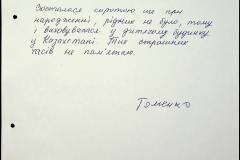 Зосталася сиротою ще при
народженні, рідних не було, тому
і виховувалася у дитячому будинку
у Казахстані Тих страшних
часів не пам'ятаю.
Гоменко